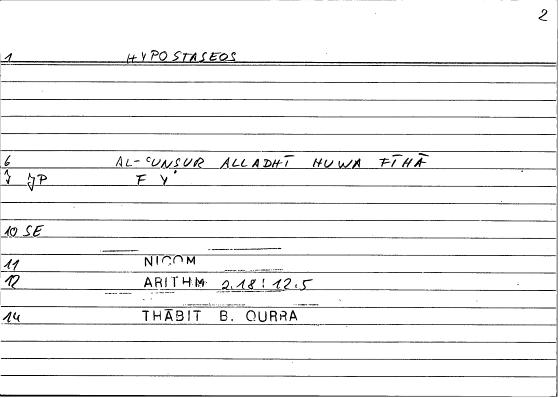 2
1 HYPOSTASEOS
6 AL-ʿUNSUR ALLADHĪ HUWA FĪHĀ
F Y
10 SE
11 NICOM
12 ARITHM 2.18:12.5
14 THĀBIT B. QURRA